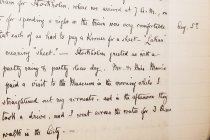 train for Stockholm, where we arrived at 7 the M. on
for spending a night on the train was very comfortable
that each of us had to pay a Kroner for a sheet - "Lakan"
meaning "sheet". - Stockholm greeted us with a
pretty rainy & pretty chase day. Mr. & Mrs.
paid a visit to the Museum in the morning while I
straightened out my accounts, and in the afternoon they
took a drive, and I went across the water for 3 hours
walk in the City -
Aug. 5th